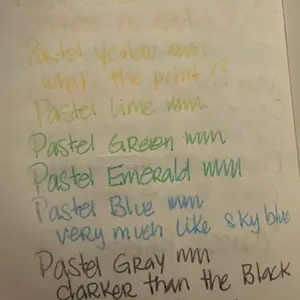 Pastel yellow
what's the point??
Pastel Lime
Pastel GReen
Pastel Emerald
Pastel Blue
very much like sky blue
Pastel Gray
darker than the Black